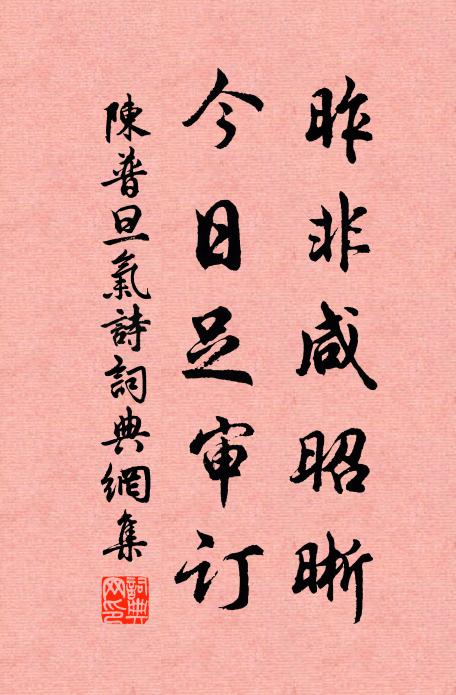 昨非咸昭晰
今日足审订
陳普旦氣詩詞典網集
詞典网印